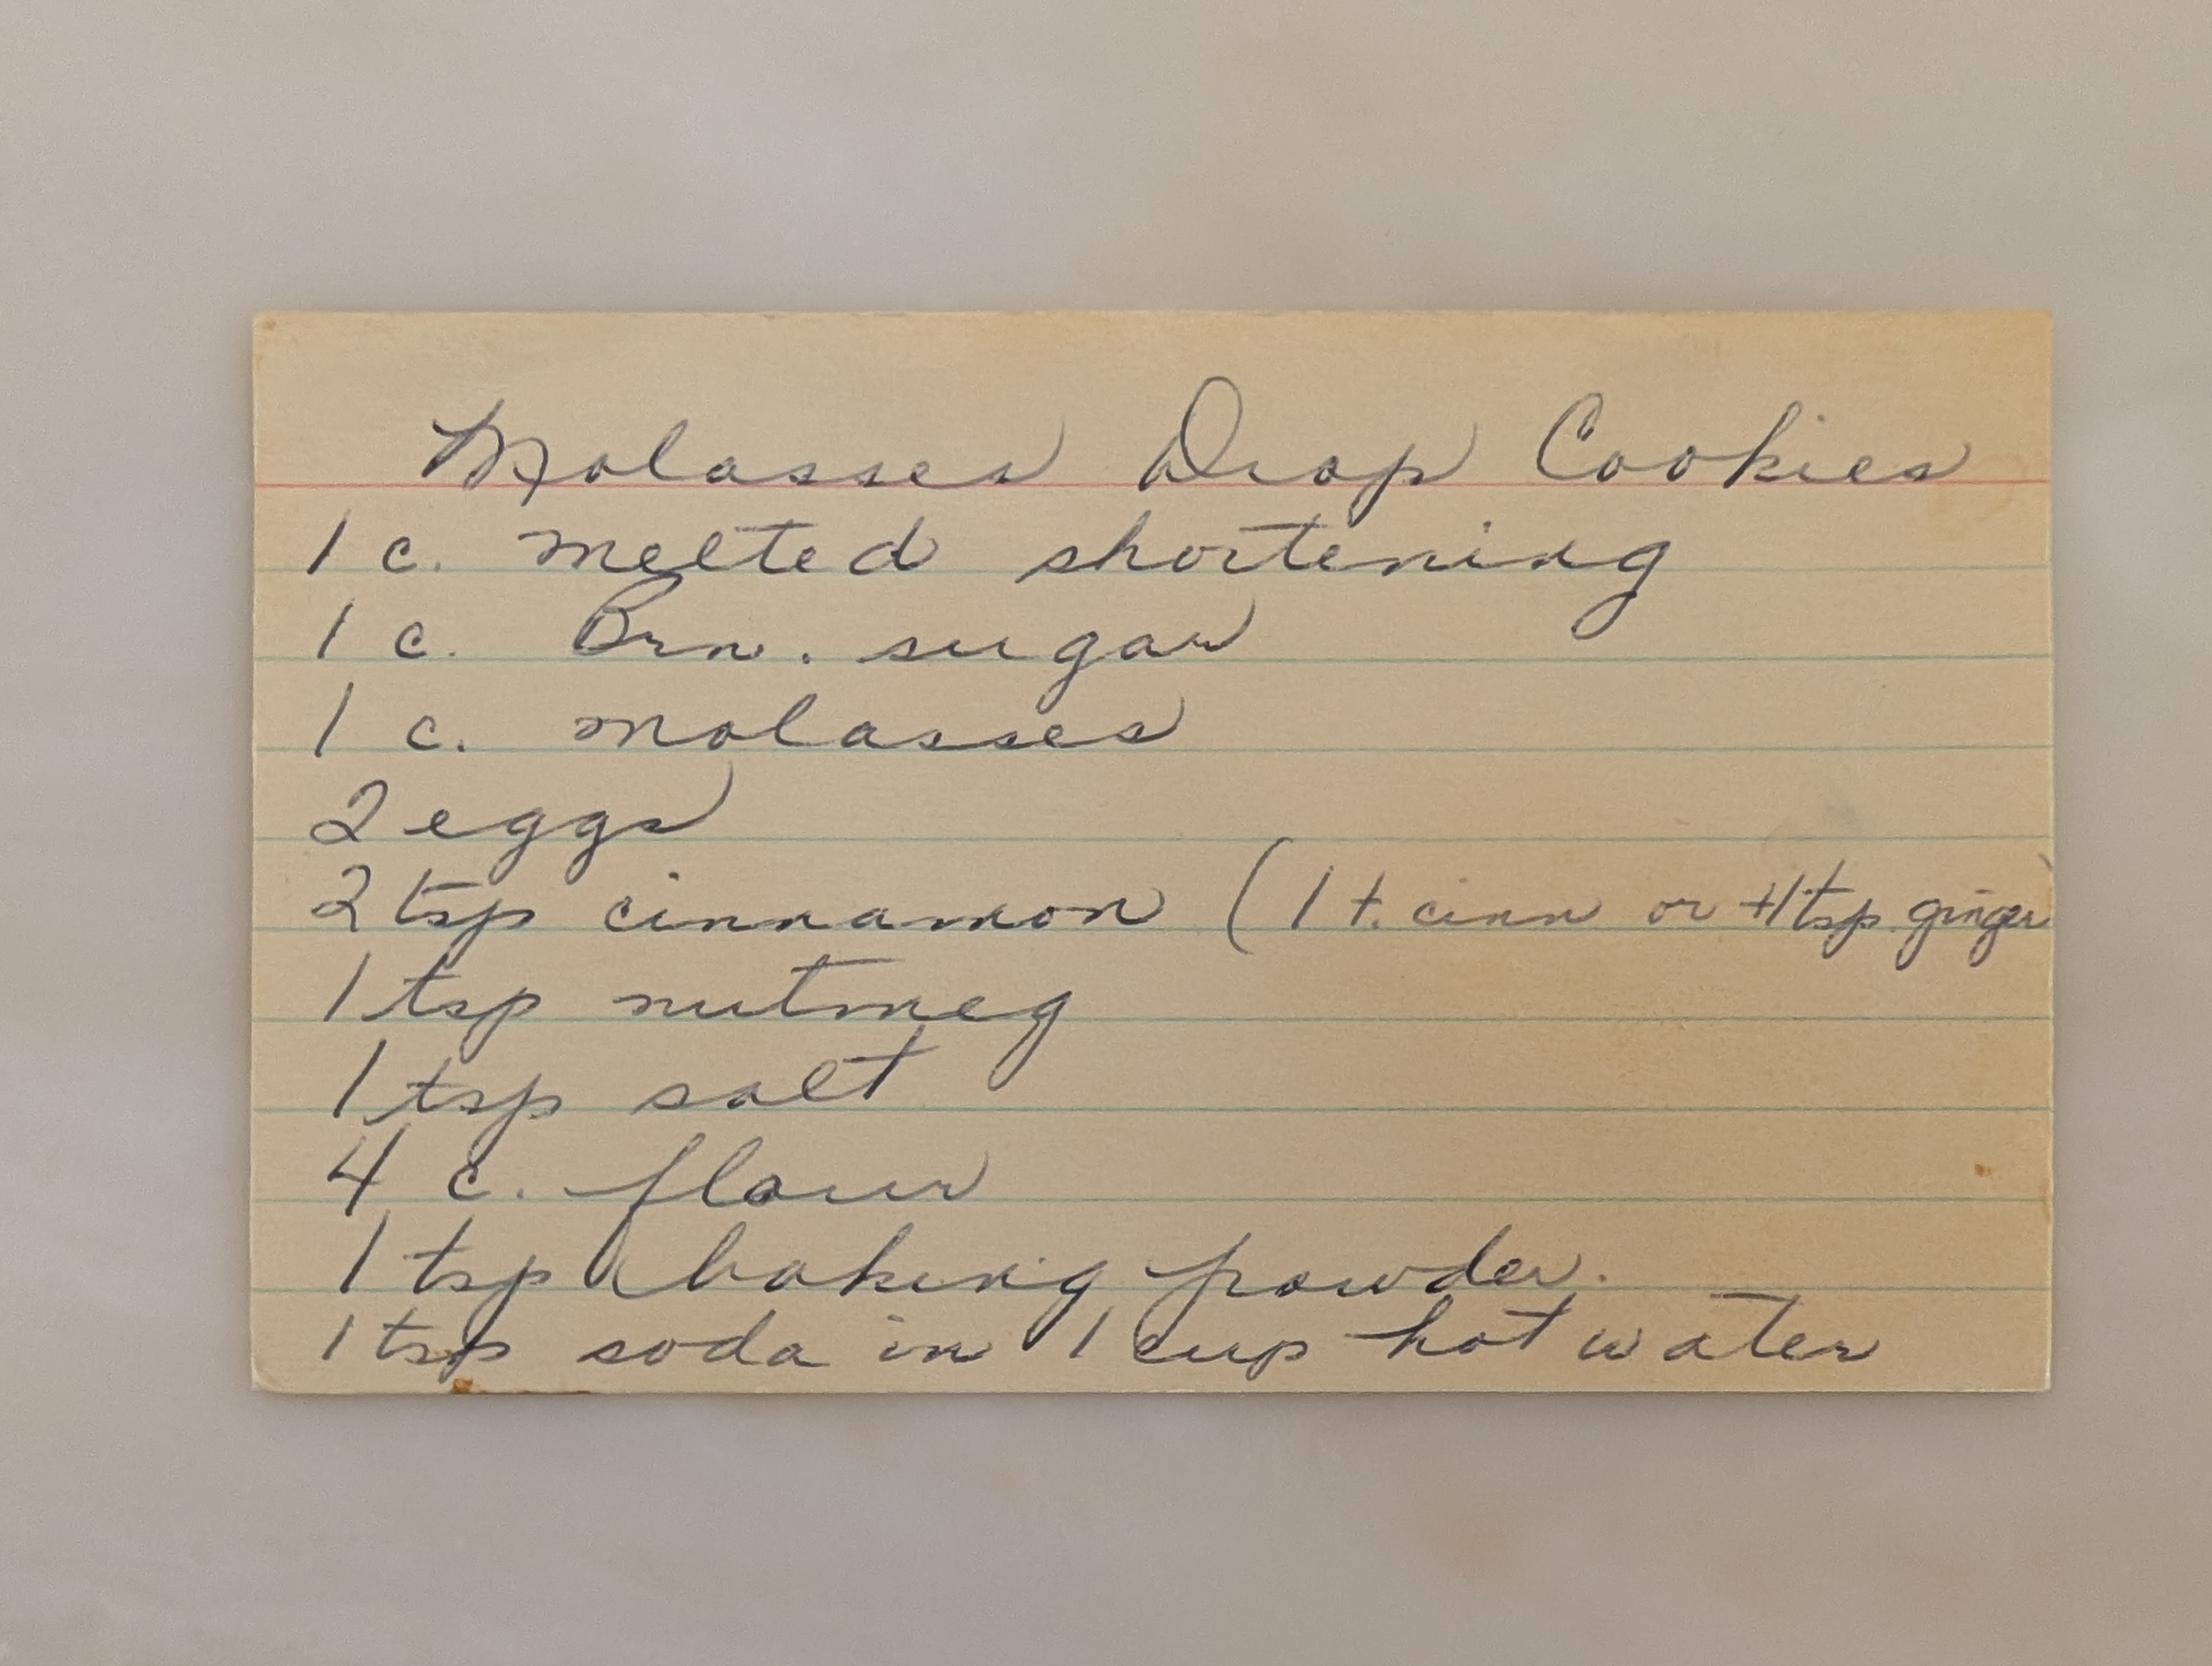 Molasses Drop Cookies
1 c. melted shortening
1 c. Brn. sugar
1 c. molasses
2 eggs
2 tsp cinnamon (1 t. cinn or +1 tsp. ginger)
1 tsp nutmeg
1 tsp salt
4 c. flour
1 tsp baking powder.
1 tsp soda in 1 cup hot water